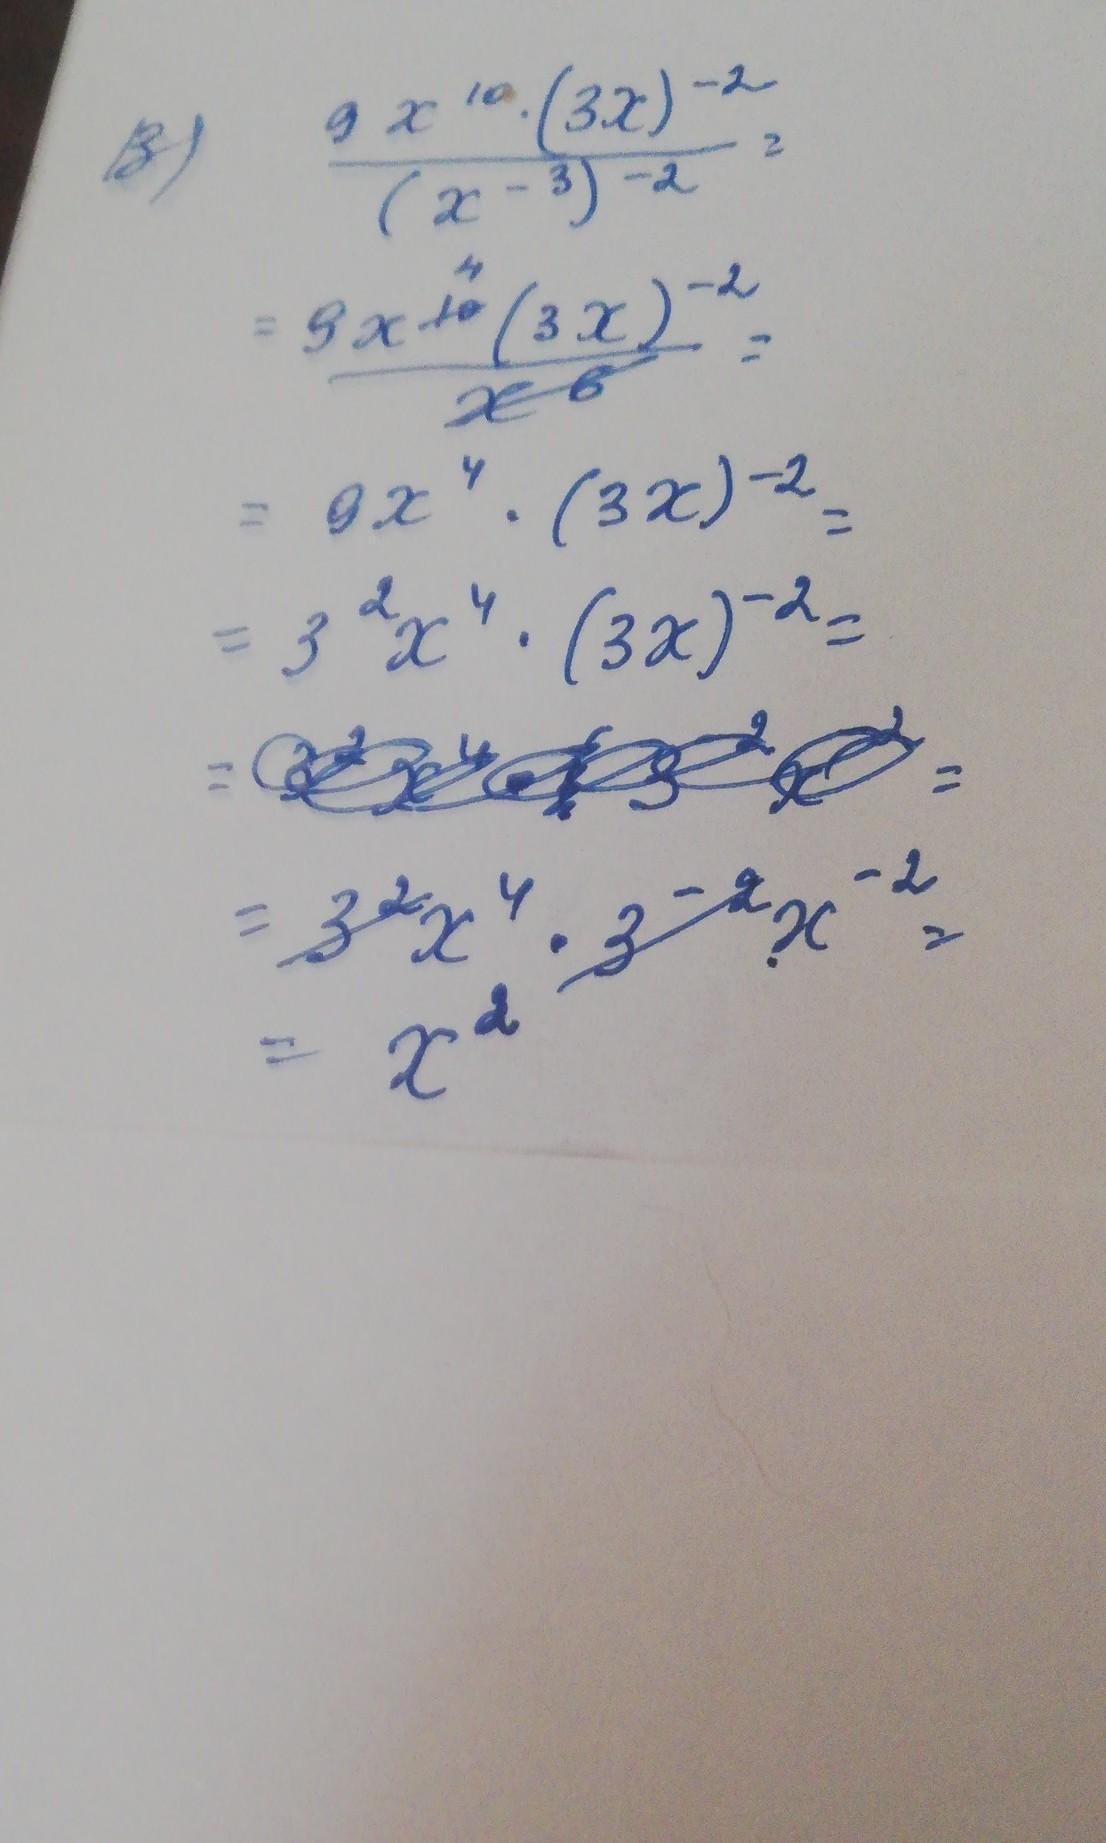 3) 9x^10 · (3x)^-2 / (x^-3)^-2 =
= 9x^10 4 (3x)^-2 / x^6 =
= 9x^4 · (3x)^-2 =
= 3^2 x^4 · (3x)^-2 =
= =
= 3^2 x^4 · 3^-2 x^-2 =
= x^2